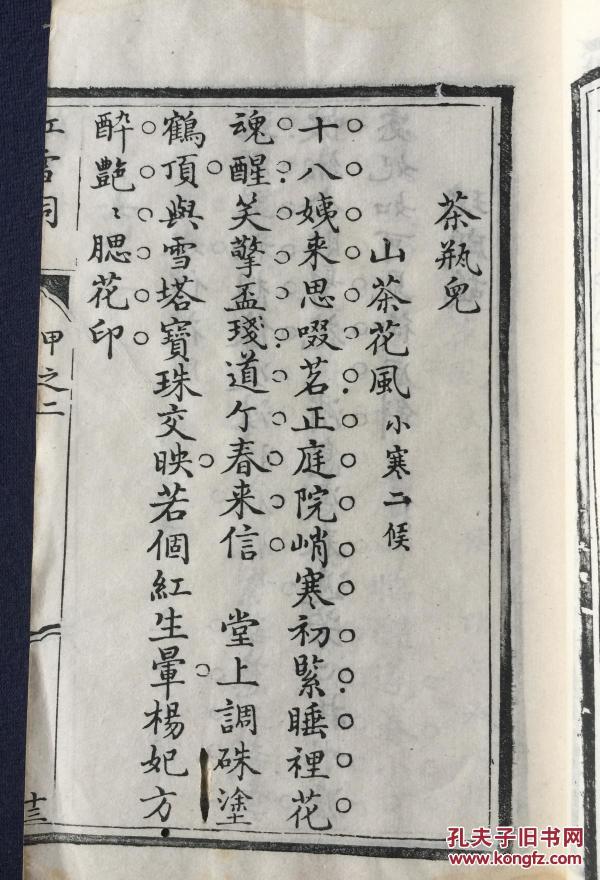 茶瓶兒
山茶花風 小寒二候
十八姨来思啜茗正庭院峭寒初緊睡裡花
魂醒笑擎盃琖道个春来信　堂上調硃塗
鶴頂與雪塔寶珠交映若個紅生暈楊妃方
醉艷〻腮花印
紅雪詞
甲之二
十三
孔夫子旧书网
www.kongfz.com